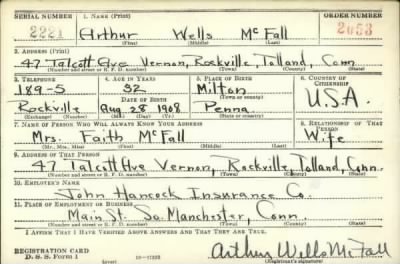 SERIAL NUMBER 1. NAME (Print) ORDER NUMBER
2221 Arthur Wells McFall 2053
(First) (Middle) (Last)
2. ADDRESS (Print)
47 Talcott Ave Vernon, Rockville, Tolland, Conn
(Number and street or R. F. D. number) (Town) (County) (State)
3. TELEPHONE 4. AGE IN YEARS 5. PLACE OF BIRTH 6. COUNTRY OF CITIZENSHIP
189-5 32 Milton U.S.A.
DATE OF BIRTH (Town or county)
Rockville Aug 28 1908 Penna.
(Exchange) (Number) (Mo.) (Day) (Yr.) (State or country)
7. NAME OF PERSON WHO WILL ALWAYS KNOW YOUR ADDRESS 8. RELATIONSHIP OF THAT PERSON
Mrs. Faith McFall Wife
(Mr., Mrs., Miss) (First) (Middle) (Last)
9. ADDRESS OF THAT PERSON
47 Talcott Ave Vernon, Rockville, Tolland, Conn.
(Number and street or R. F. D. number) (Town) (County) (State)
10. EMPLOYER'S NAME
John Hancock Insurance Co.
11. PLACE OF EMPLOYMENT OR BUSINESS
Main St. So. Manchester, Conn.
(Number and street or R. F. D. number) (Town) (County) (State)
I AFFIRM THAT I HAVE VERIFIED ABOVE ANSWERS AND THAT THEY ARE TRUE.
REGISTRATION CARD
D. S. S. Form 1 (over) Arthur Wells McFall
(Registrant's signature)